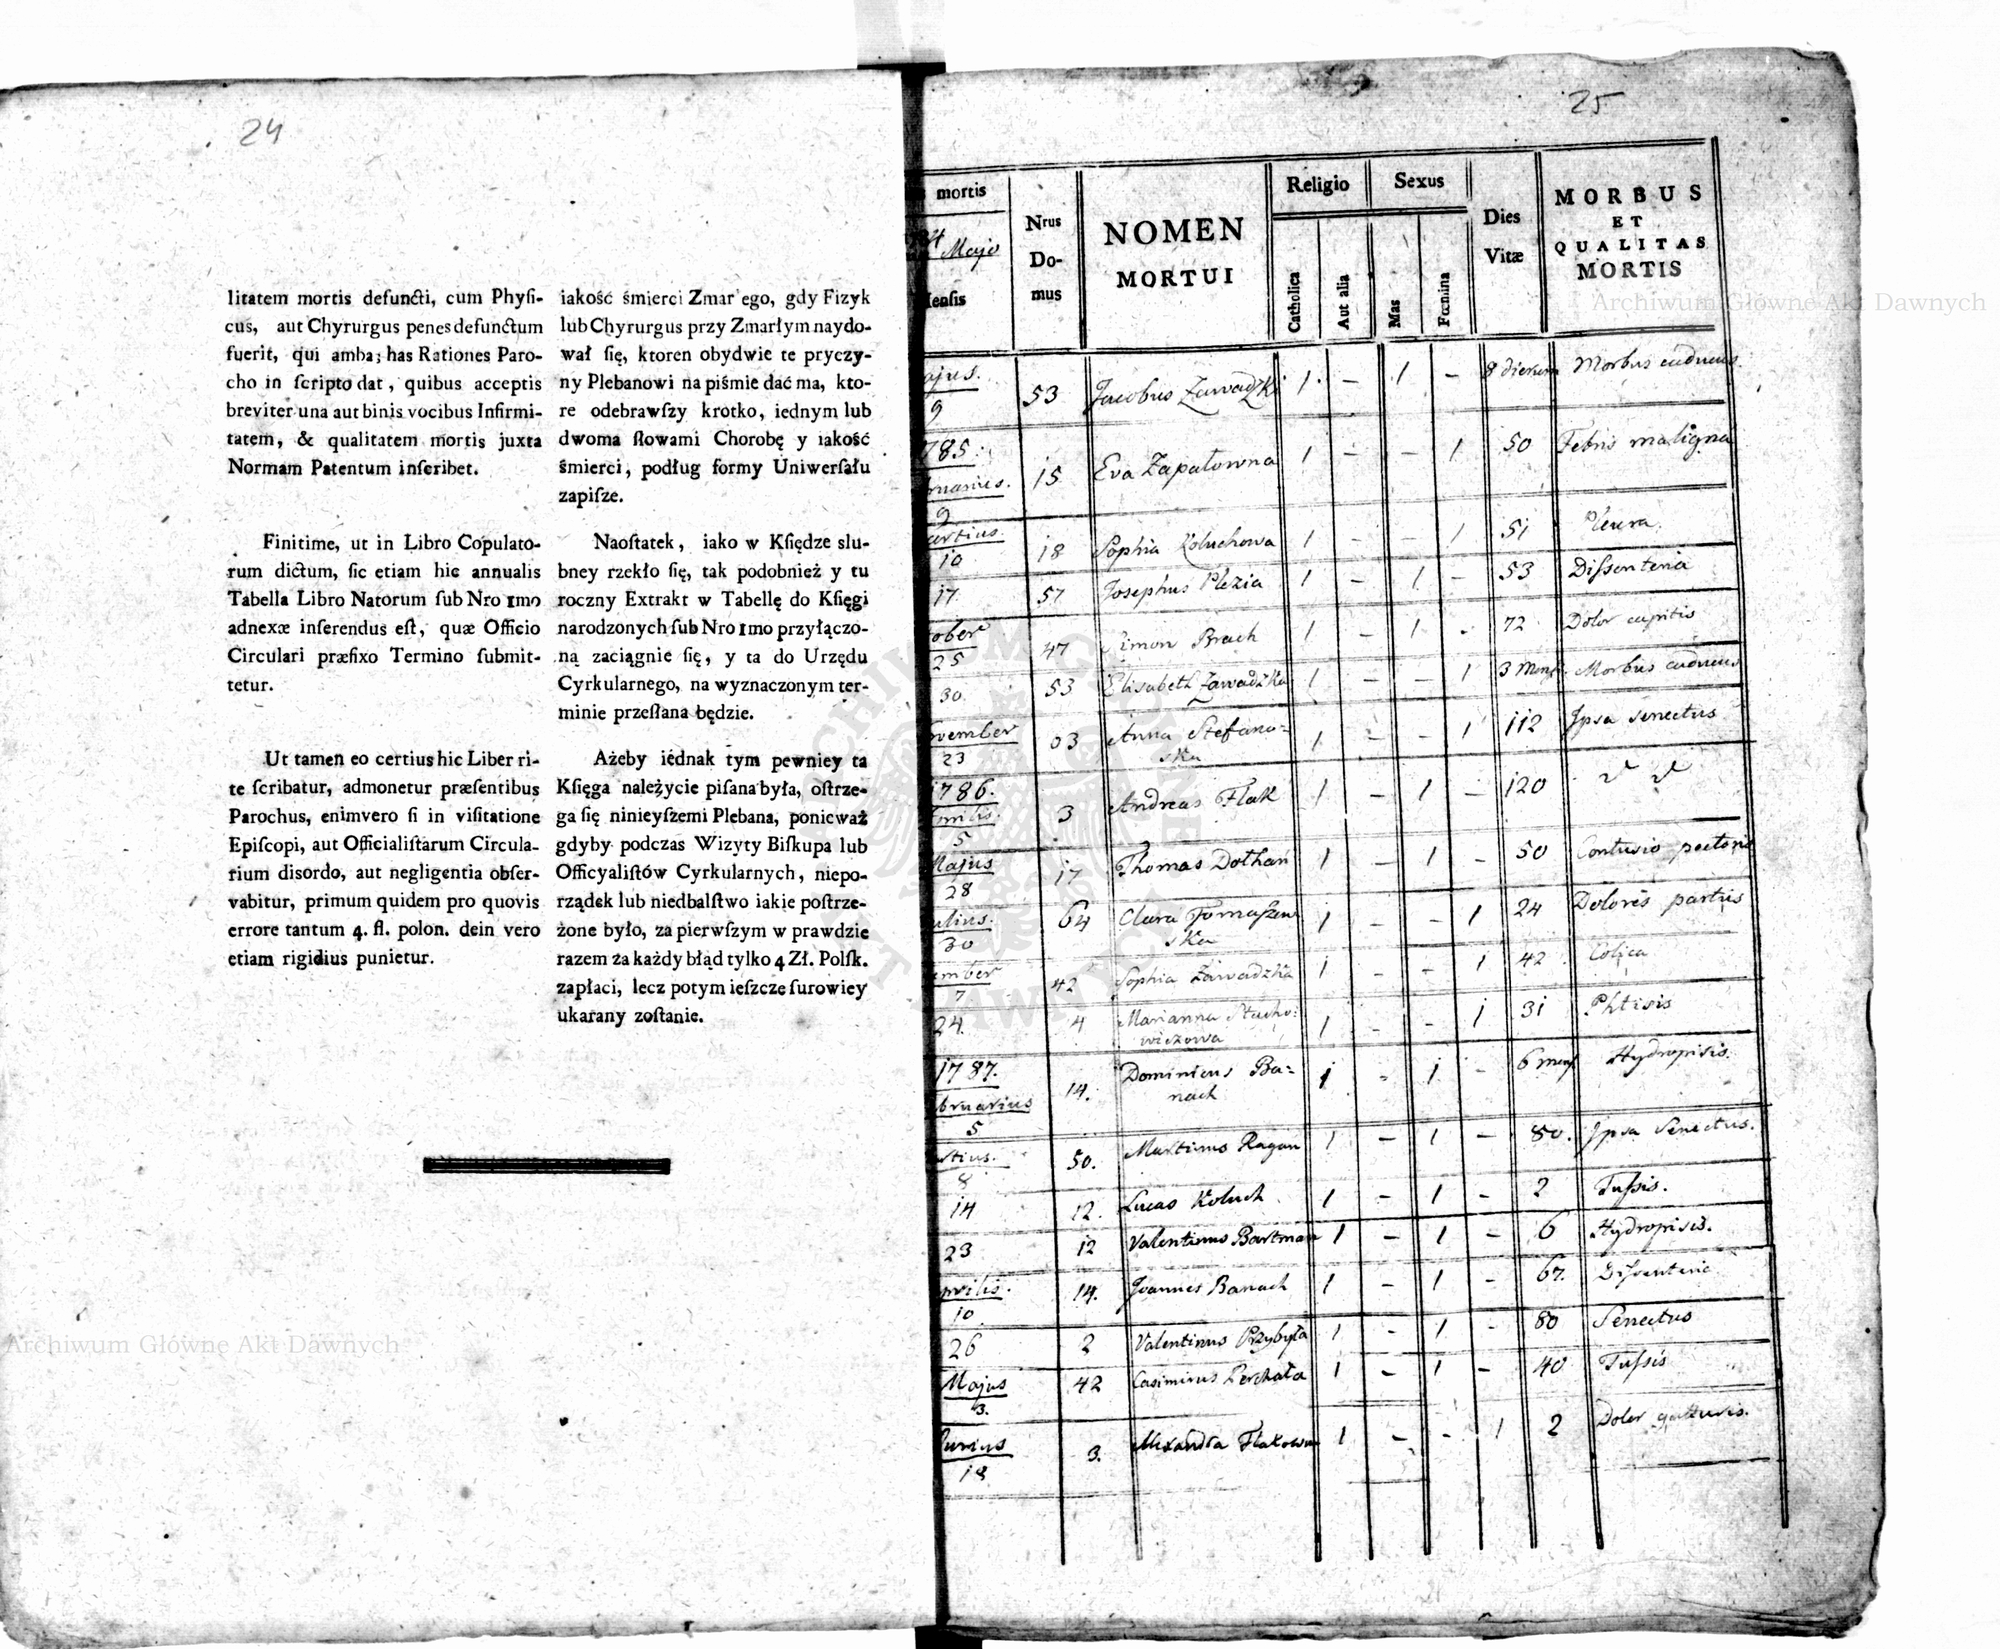 24
litatem mortis defuncti, cum Phyſi-
cus, aut Chyrurgus penes defunctum
fuerit, qui amba; has Rationes Paro-
cho in ſcripto dat, quibus acceptis
breviter una aut binis vocibus Infirmi-
tatem, & qualitatem mortis juxta
Normam Patentum inſcribet.
Finitime, ut in Libro Copulato-
rum dictum, ſic etiam hic annualis
Tabella Libro Natorum ſub Nro 1mo
adnexæ inſerendus eſt, quæ Officio
Circulari præfixo Termino ſubmit-
tetur.
Ut tamen eo certius hic Liber ri-
te ſcribatur, admonetur præſentibus
Parochus, enimvero ſi in viſitatione
Epiſcopi, aut Officialiſtarum Circula-
rium disordo, aut negligentia obſer-
vabitur, primum quidem pro quovis
errore tantum 4. fl. polon. dein vero
etiam rigidius punietur.
iakość śmierci Zmar'ego, gdy Fizyk
lub Chyrurgus przy Zmarłym naydo-
wał ſię, ktoren obydwie te pryczy-
ny Plebanowi na piśmie dać ma, kto-
re odebrawſzy krotko, iednym lub
dwoma ſłowami Chorobę y iakość
śmierci, podług formy Uniwerſału
zapiſze.
Naoſtatek, iako w Kſiędze slu-
bney rzekło ſię, tak podobnież y tu
roczny Extrakt w Tabellę do Kſięgi
narodzonych ſub Nro 1mo przyłączo-
ną zaciągnie ſię, y ta do Urzędu
Cyrkularnego, na wyznaczonym ter-
minie przeſłana będzie.
Ażeby iédnak tym pewniey ta
Kſięga należycie piſana była, oſtrze-
ga ſię ninieyſzemi Plebana, ponieważ
gdyby podczas Wizyty Biſkupa lub
Officyaliſtów Cyrkularnych, niepo-
rządek lub niedbalſtwo iakie poſtrze-
żone było, za pierwſzym w prawdzie
razem za każdy błąd tylko 4 Zł. Polſk.
zapłaci, lecz potym ieſzcze ſurowiey
ukarany zoſtanie.
Archiwum Główne Akt Dawnych
25
mortis Nrus Domus NOMEN MORTUI Religio Catholica Aut alia Sexus Mas Fœmina Dies Vitæ MORBUS ET QUALITAS MORTIS
Majo
Archiwum Główne Akt Dawnych
9 53 Jacobus Zawadzki 1 - 1 - 8 dierum Morbus caducus
785.
9 15 Eva Zapałowna 1 - - 1 50 Febris maligna
10 18 Sophia Koluchowa 1 - - 1 51 Pleura
17 57 Josephus Plezia 1 - 1 - 53 Diſsenteria
25 47 Simon Brach 1 - 1 - 72 Dolor capitis
30. 53 Elisabeth Zawadzka 1 - - 1 3 Menſ. Morbus caducus
vember
23 03 Anna Stefano=
ska 1 - - 1 112 Ipsa senectus
1786.
5 3 Andreas Flak 1 - 1 - 120
Majus
28 17 Thomas Dothań 1 - 1 - 50 Contusio pectoris
30 64 Clara Tomaſzew
ska 1 - - 1 24 Dolores partus
7 42 Sophia Zawadzka 1 - - 1 42 Colica
24. 4 Marianna Stacho=
wiczowa 1 - - 1 31 Phtisis
1787.
bruarius
5 14. Dominicus Ba=
nach 1 - 1 - 6 menſ. Hydropisis.
8 50. Martinus Ragan 1 - 1 - 80. Ipsa Senectus.
14 12. Lucas Koluch 1 - 1 - 2 Tuſsis.
23 12 Valentinus Bartman 1 - 1 - 6 Hydropisis.
prilis.
10 14. Joannes Banach 1 - 1 - 67. Diſsenteria
26 2 Valentinus Przybyła 1 - 1 - 80 Senectus
Majus
3. 42 Casimirus Perchała 1 - 1 - 40 Tuſsis
Junius
18 3. Alexandra Flakowna 1 - - 1 2 Dolor gutturis.